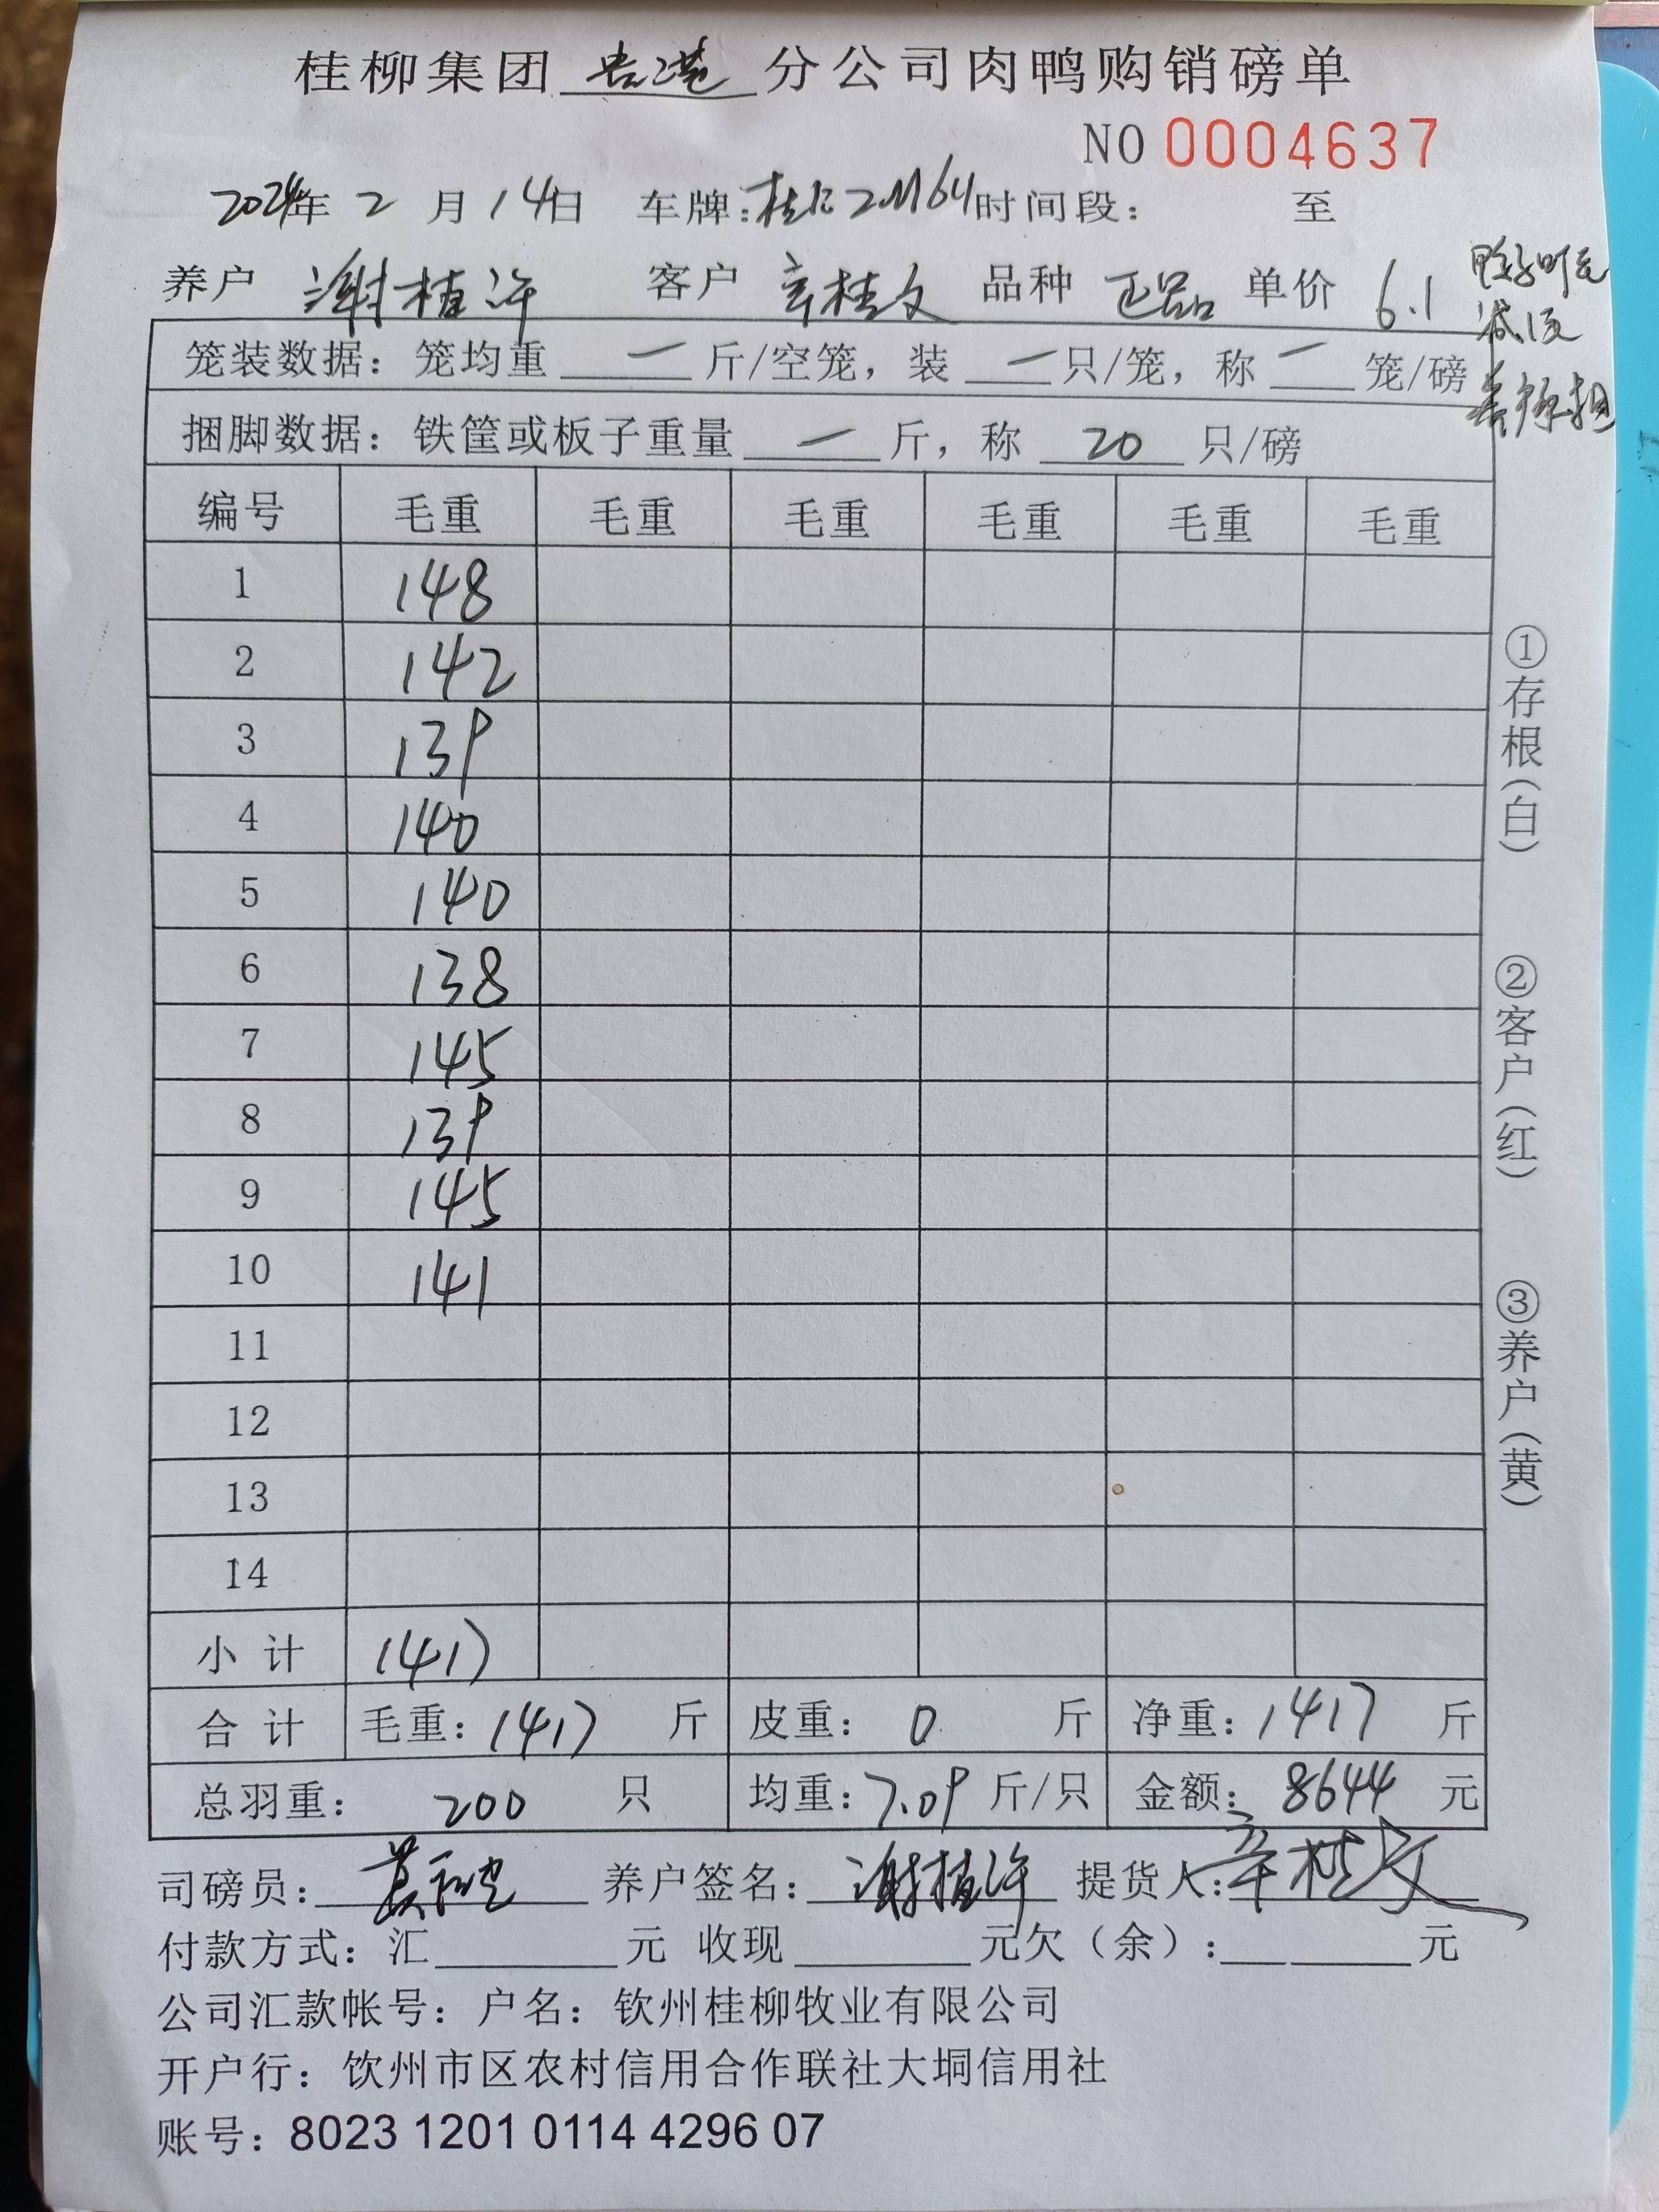 桂柳集团 贵港 分公司肉鸭购销磅单
NO 0004637
2024年 2 月 14日 车牌: 时间段: 至
养户 谢植许 客户 辛桂文 品种 正品 单价 6.1
笼装数据: 笼均重 一 斤/空笼, 装 一 只/笼, 称 一 笼/磅
捆脚数据: 铁筐或板子重量 一 斤, 称 20 只/磅
编号 毛重 毛重 毛重 毛重 毛重 毛重
1 148
2 142
3 139
4 140
5 140
6 138
7 145
8 139
9 145
10 141
11
12
13
14
小 计 1417
合 计 毛重: 1417 斤 皮重: 0 斤 净重: 1417 斤
总羽重: 200 只 均重: 7.09 斤/只 金额: 8644 元
司磅员: 养户签名: 谢植许 提货人: 辛桂文
付款方式: 汇 元 收现 元欠(余): 元
公司汇款帐号: 户名: 钦州桂柳牧业有限公司
开户行: 钦州市区农村信用合作联社大垌信用社
账号: 8023 1201 0114 4296 07
①存根(白)
②客户(红)
③养户(黄)